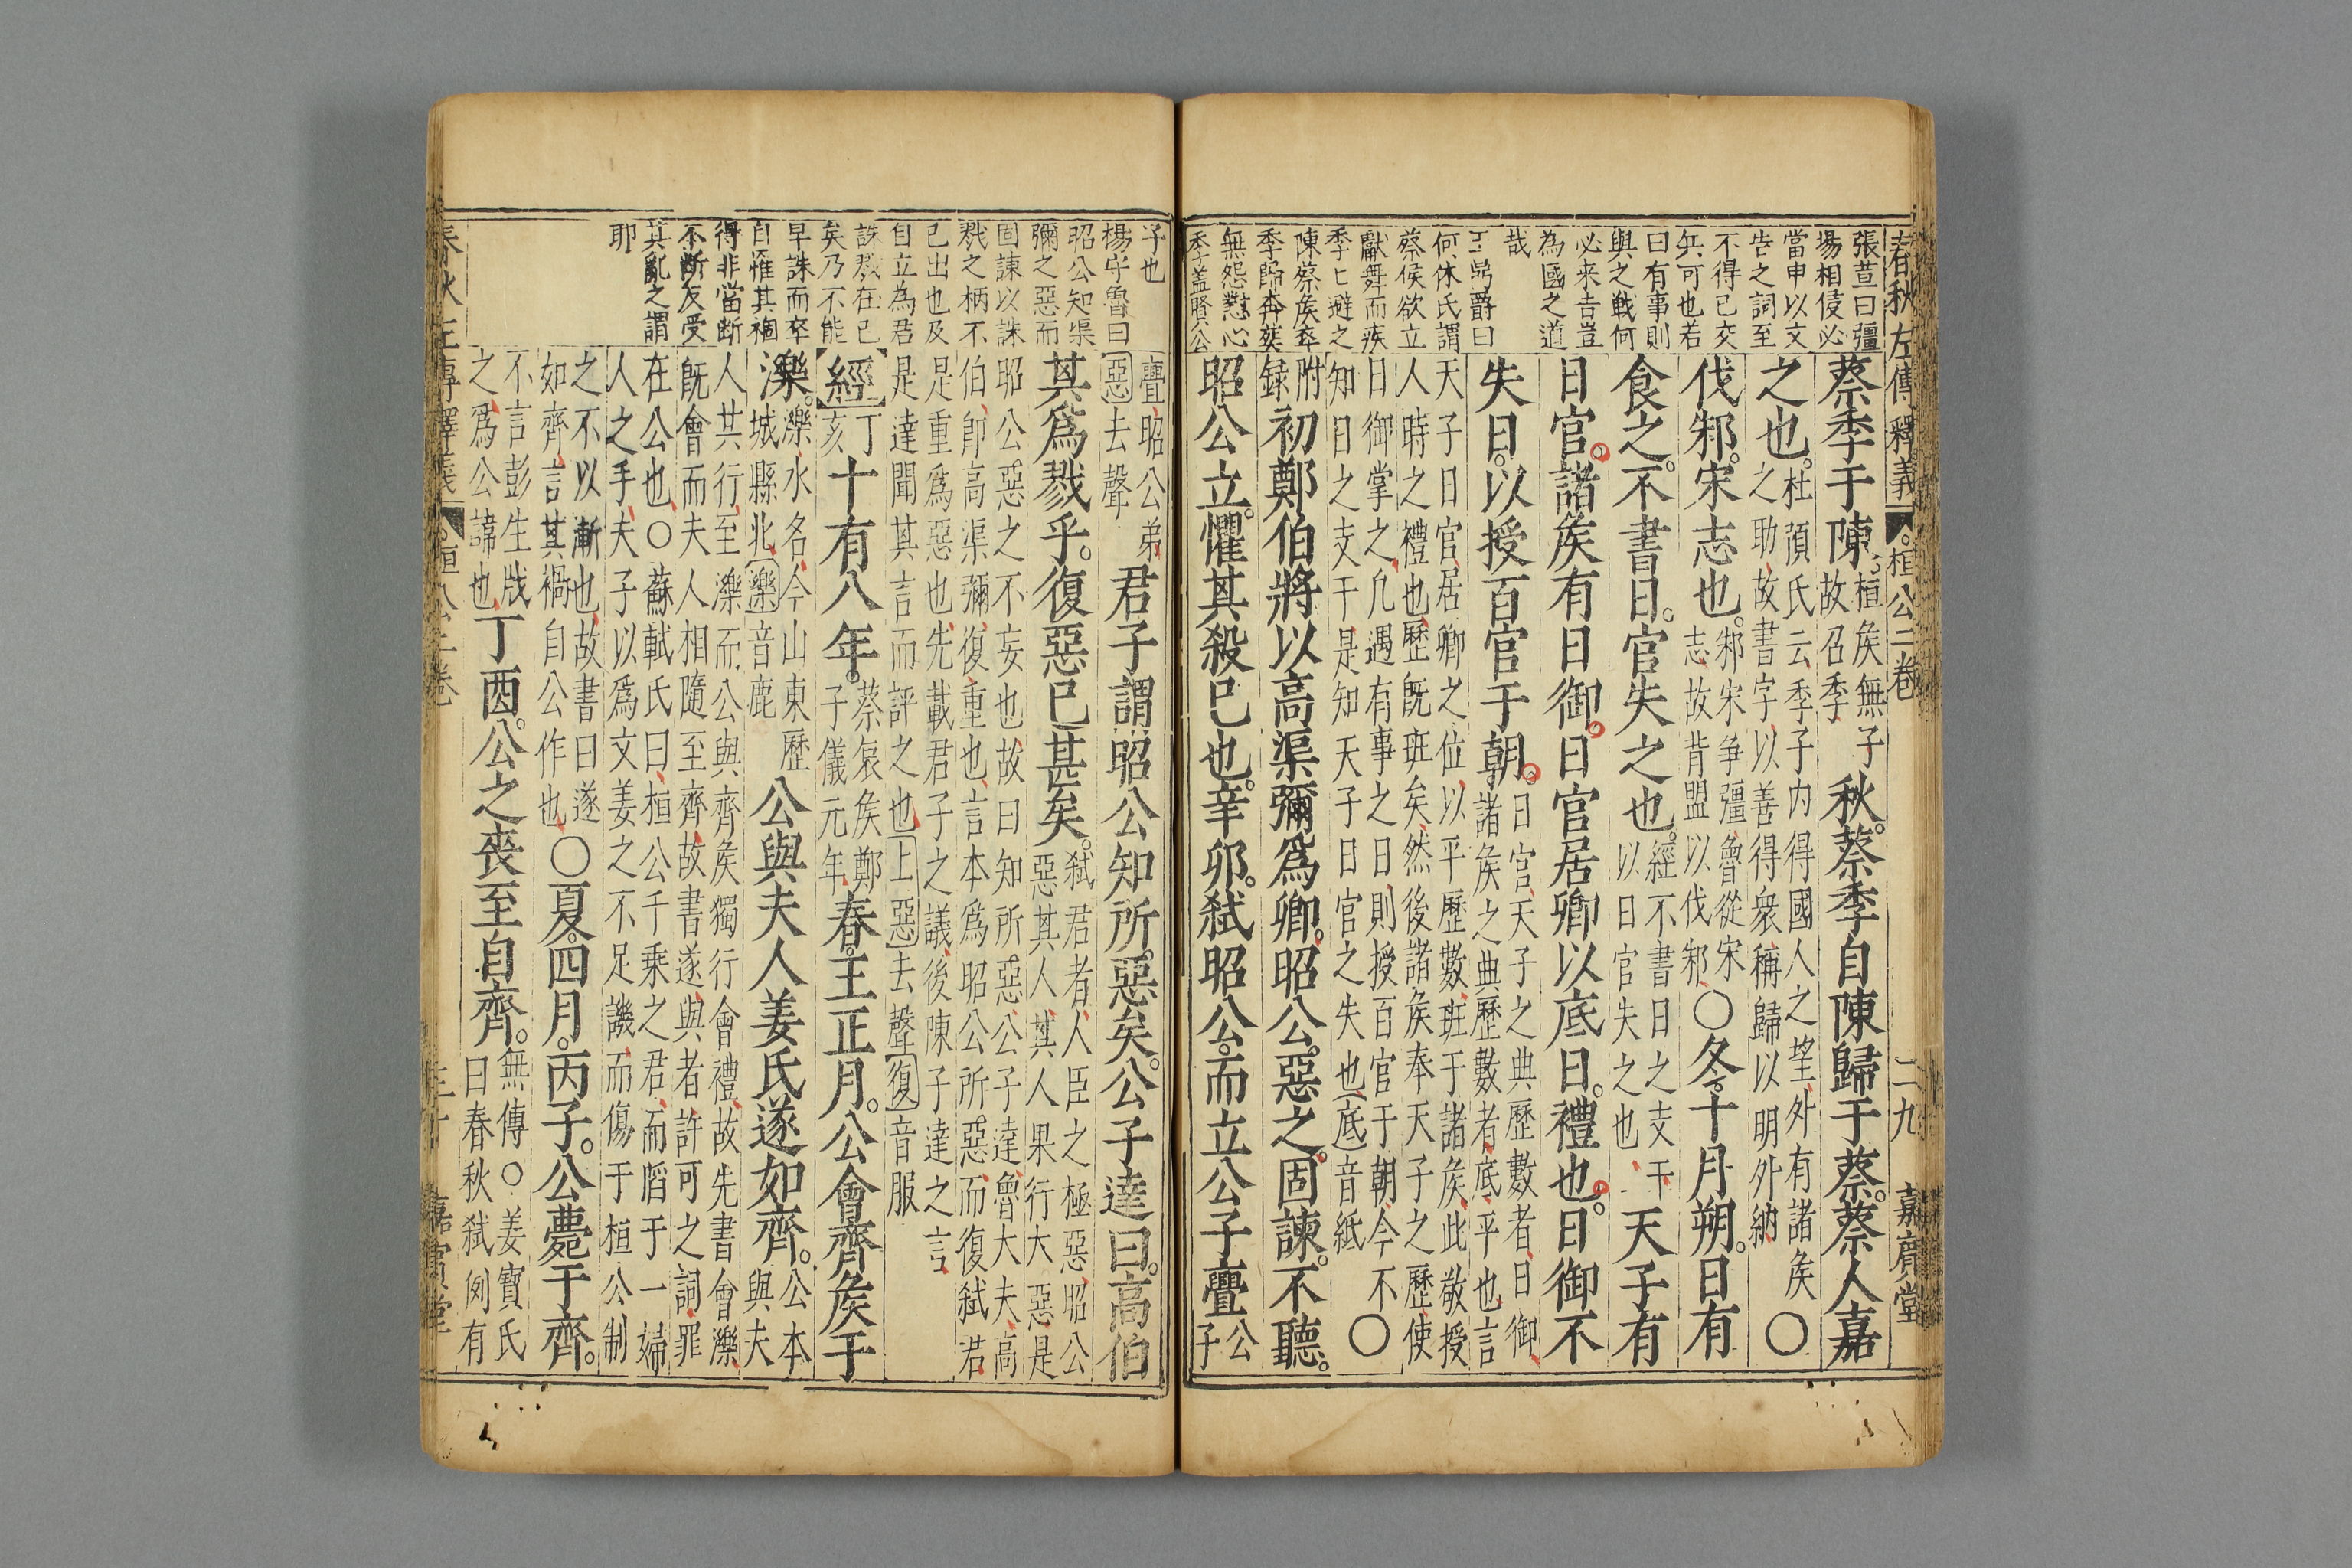 春秋左傳釋義 桓公二卷 二九 嘉賔堂
張荁曰彊
場相侵必
當申以文
告之詞至
不得已交
兵可也若
曰有事則
與之戰何
必来告豈
為國之道
哉
曰
何休氏謂
蔡侯欲立
獻舞而疾
季匕避之
陳蔡矦卒
季歸奔䘮
無怨懟心
季盖賢公
蔡季于陳桓矦無子故召季秋。蔡季自陳歸于蔡。蔡人嘉
之也。杜預氏云季子内得國人之望外有諸矦
之助故書字以善得衆稱歸以明外納〇
伐邾。宋志也。邾宋争彊魯從宋
志故背盟以伐邾〇冬。十月朔。日有
食之。不書日。官失之也。經不書日之支干
以日官失之也天子有
日官。諸矦有日御。日官居卿以底日。禮也。日御不
失日。以授百官于朝。日官天子之典歷數者日御
諸矦之典歷數者底平也言
天子日官居卿之位以平歷數班于諸矦此敬授
人時之禮也歷既班矣然後諸矦奉天子之歷使
日御掌之凡遇有事之日則授百官于朝今不
知日之支干是知天子日官之失也底音紙〇
附
録初鄭伯將以高渠彌爲卿。昭公惡之。固諫。不聽。
昭公立。懼其殺已也。辛卯。弑昭公。而立公子亹公
子
子也
楊守魯曰
昭公知渠
彌之惡而
固諫以誅
戮之柄不
已出也及
自立為君
誅戮在已
矣乃不能
早誅而卒
自罹其禍
得非當断
不断反受
其亂之謂
耶
亹昭公弟
惡去聲君子謂昭公知所。惡矣。公子達曰。高伯
其爲戮乎。復惡已甚矣。弑君者人臣之極惡昭公
惡其人其人果行大惡是
昭公惡之不妄也故曰知所惡公子達魯大夫高
伯即高渠彌復重也言本爲昭公所惡而復弑君
是重爲惡也先載君子之議後陳子達之言
是達聞其言而評之也上惡去聲復音服
經丁
亥十有八年。蔡哀矦鄭
子儀元年春。王正月。公會齊矦于
濼。濼水名今山東歷
城縣北濼音鹿公與夫人姜氏遂如齊。公本
與夫
人其行至濼而公與齊矦獨行會禮故先書會濼
既會而夫人相隨至齊故書遂與者許可之詞罪
在公也〇蘇軾氏曰桓公千乘之君而䧟于一婦
人之手夫子以爲文姜之不足譏而傷于桓公制
之不以漸也故書曰遂
如齊言其禍自公作也〇夏。四月。丙子。公薨于齊。
不言彭生戕
之爲公諱也丁酉。公之喪至自齊。無傳〇姜寶氏
曰春秋弑例有
春秋左傳釋義 桓公二卷 三十 嘉賔堂